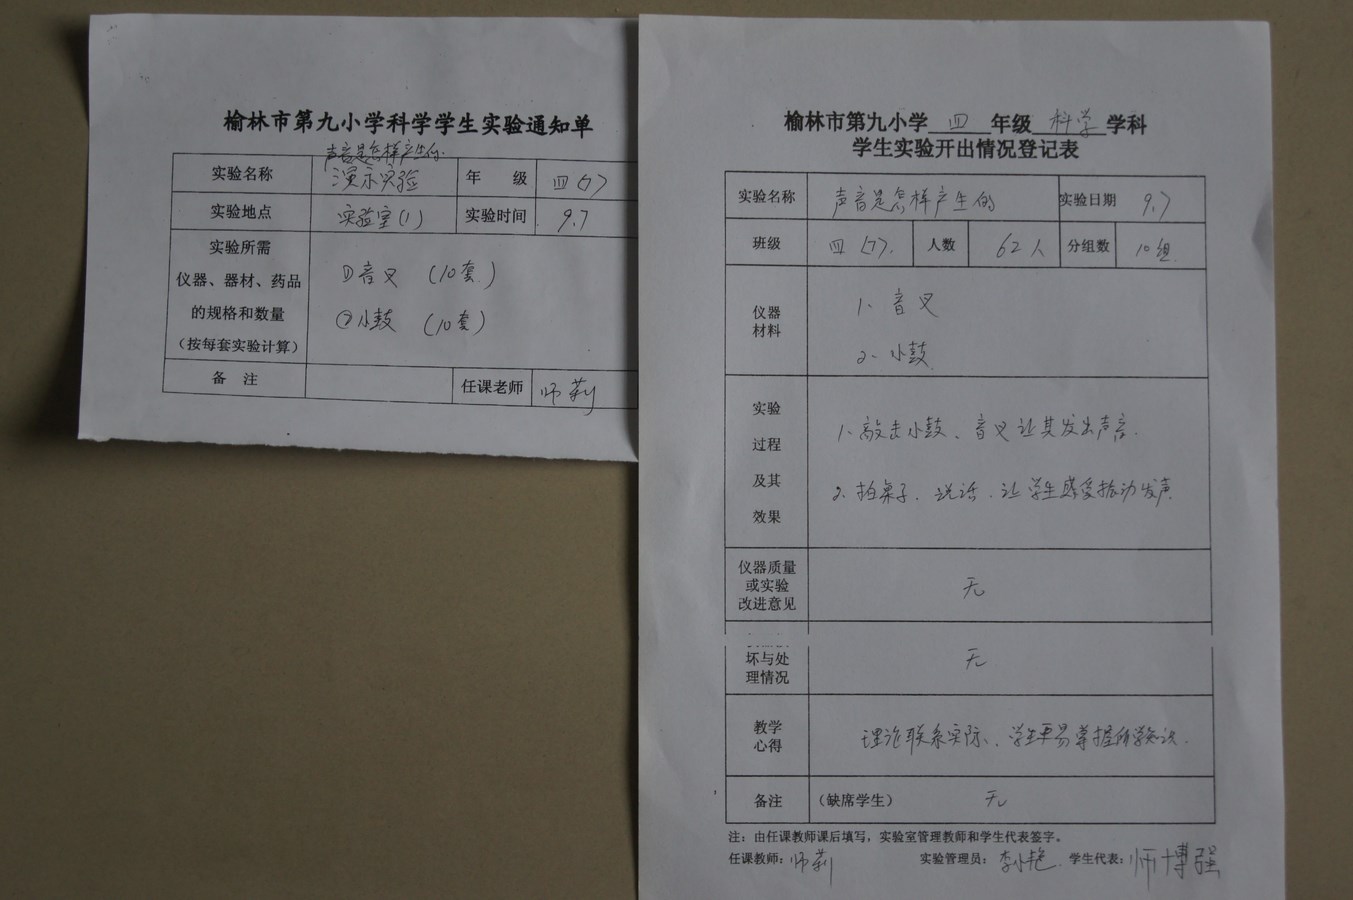 榆林市第九小学科学学生实验通知单
声音是怎样产生的.
实验名称 演示实验 年 级 四(7)
实验地点 实验室(1) 实验时间 9.7
实验所需
仪器、器材、药品
的规格和数量
（按每套实验计算）
①音叉 (10套)
②小鼓 (10套)
备 注 任课老师 师莉
榆林市第九小学 四 年级 科学 学科
学生实验开出情况登记表
实验名称 声音是怎样产生的 实验日期 9.7
班级 四(7). 人数 62人 分组数 10组
仪器
材料
1、音叉
2、小鼓
实验
过程
及其
效果
1、敲击小鼓、音叉让其发出声音.
2、拍桌子、说话、让学生感受振动发声
仪器质量
或实验
改进意见
无
坏与处
理情况
无
教学
心得
理论联系实际、学生更易掌握所学知识.
备注 (缺席学生) 无
注：由任课教师课后填写，实验室管理教师和学生代表签字。
任课教师: 师莉 实验管理员: 李小艳 学生代表: 师博强